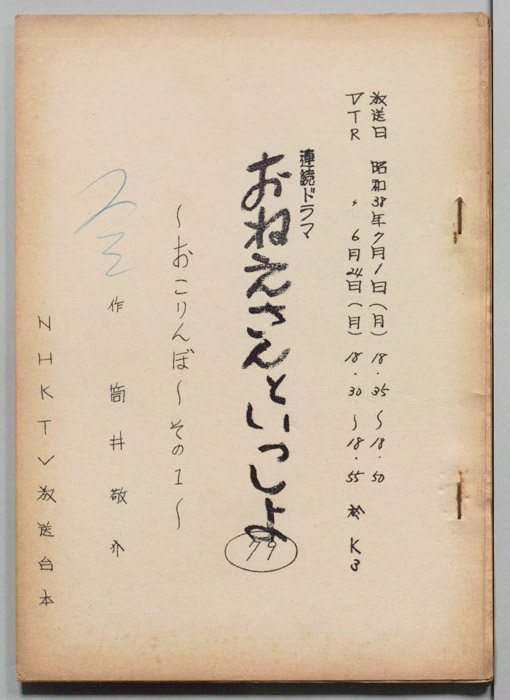 放送日 昭和38年7月1日(月) 18.35〜18.50
VTR 〃 6月24日(月) 18.30〜18.55 於 K3
連続ドラマ
おねえさんといっしょ
79
〜おこりんぼ〜その1〜
作 筒井敬介
NHKTV放送台本